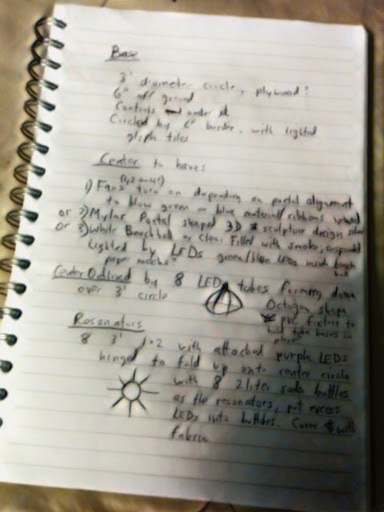 Base
3' diameter circle, plywood?
6" off ground
Controls under it
Circled by 6" border, with lighted
glyph tiles
Center to have:
1) Fans turn on depending on portal alignment
to blow green or blue material ribbons, upward
or 2) Mylar Portal shaped 3D sculpture design
or 3) White Beachball or clear. Filled with smoke,
lighted by LEDs green/blue LEDs
paper mache?
Center Outlined by 8 LED tubes forming dome
over 3' circle
Octagon shape
* PVC fixture to
hold tube bases in
place
Resonators
8 3' 1x2 with attached purple LEDs
hinged to fold up onto center circle
with 8 2 liter soda bottles
as the resonators, put excess
LEDs into bottles. Cover with
fabric